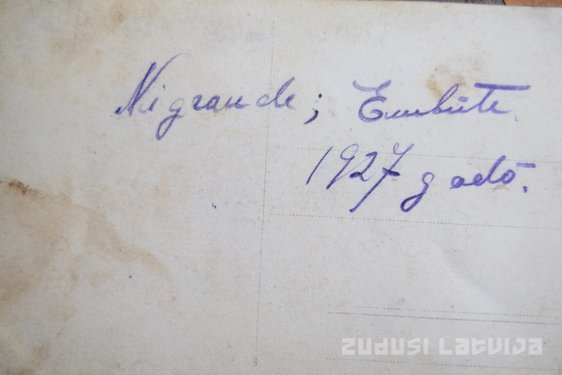 Nigrande; Embūte.
1927 gadō.
ZUDUSI LATVIJA